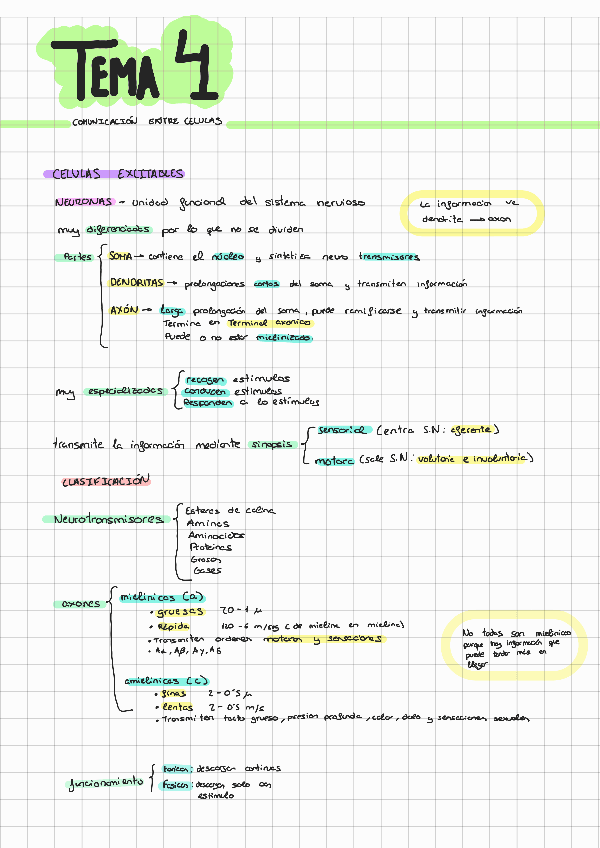 TEMA 4
COMUNICACIÓN ENTRE CELULAS
CELULAS EXCITABLES
NEURONAS - unidad funcional del sistema nervioso
La informacion va
dendrita → axon
muy diferenciadas por lo que no se dividen
Partes
SOMA → contiene el núcleo y sintetiza neuro transmisores
DENDRITAS → prolongaciones cortas del soma y transmiten información
AXÓN → Larga prolongación del soma, puede ramificarse y transmitir información
Termina en Terminal axonico
Puede o no estar mielinizado.
muy especializadas
recogen estimulos
Conducen estimulos
Responden a lo estimulos
transmite la información mediante sinapsis
sensorial (entra S.N: aferente)
motora (sale S.N: voluntaria e involuntaria)
CLASIFICACIÓN
Neurotransmisores
Esteres de colina
Aminas
Aminoacidos
Proteinas
Grasas
Gases
axones
mielinicas (a)
• gruesas 20-1 μ
• Rápida 120-6 m/seg (de mielina en mielina)
• Transmiten ordenes motoras y sensaciones
• Aα, Aβ, Aγ, Aδ
No todas son mielinicas
porque hay información que
puede tardar más en
llegar
amielinicas (c)
• finas 2-0'5 μ
• lentas 2-0'5 m/s
• Transmiten tacto grueso, presion profunda, calor, dolor y sensaciones sexuales
funcionamiento
Tonicas: descargan continuas
Fasicas: descargan solo con
estimulo